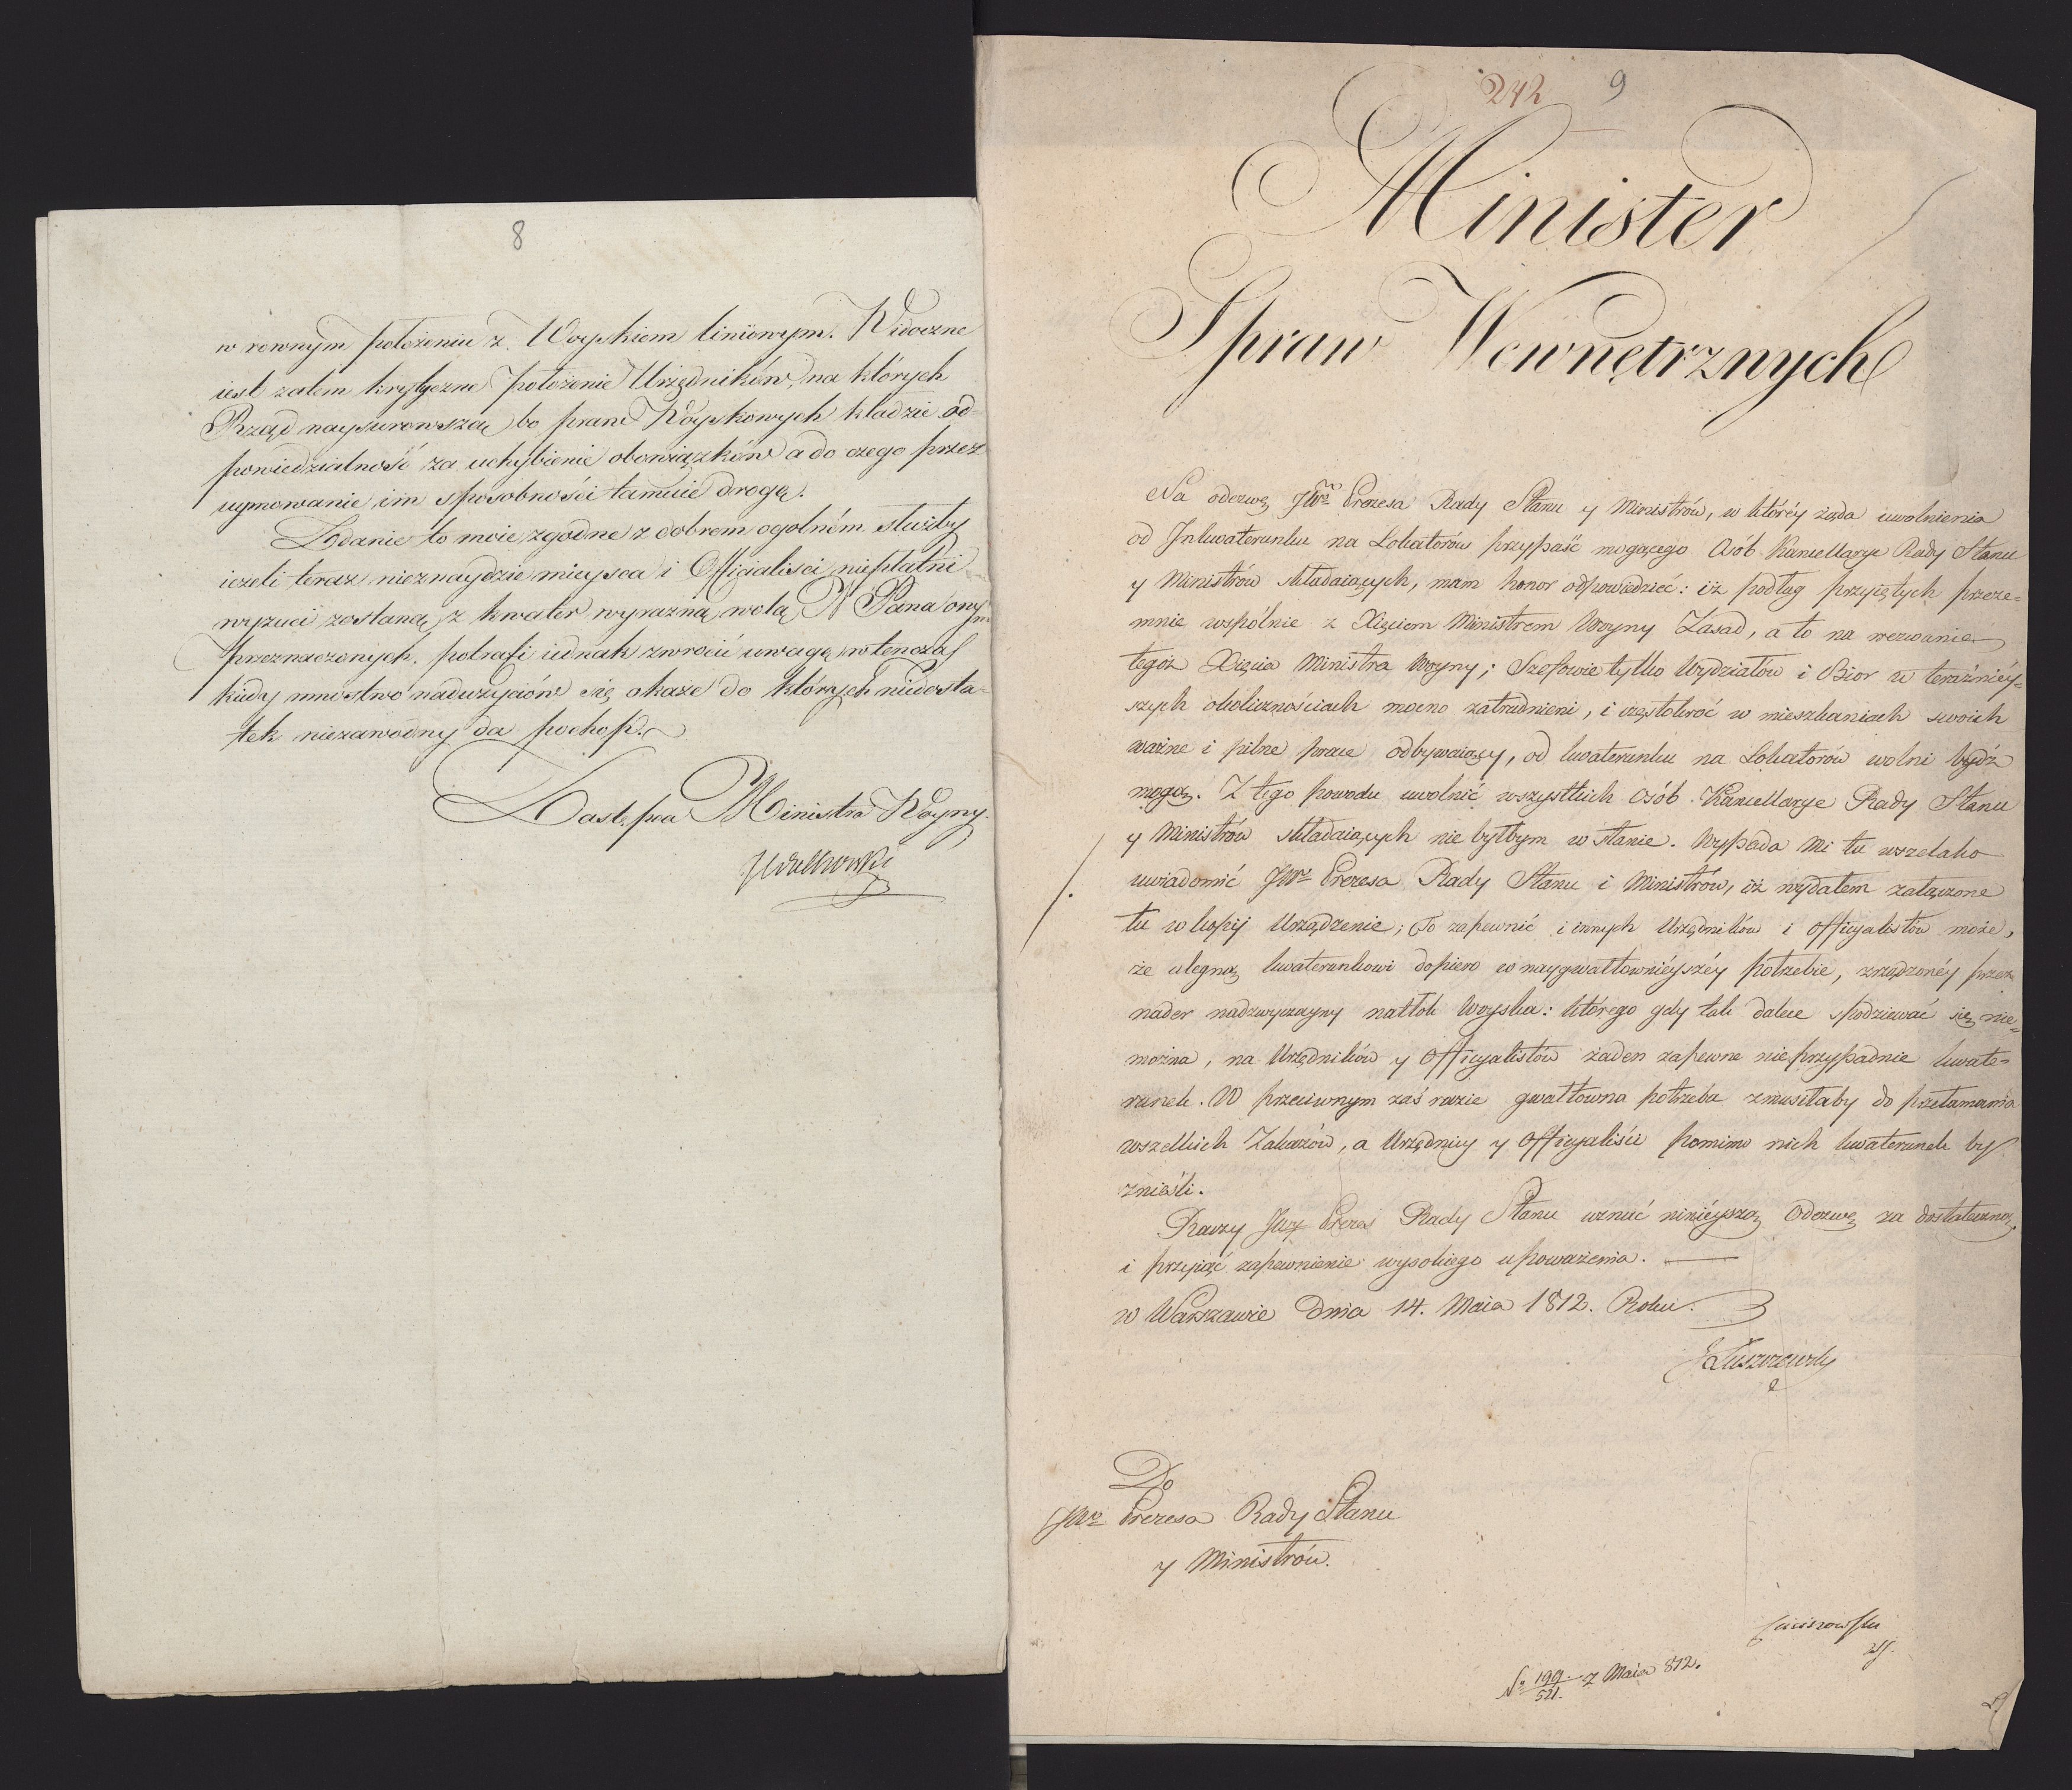 8
w rownym położeniu z Woyskiem liniiowym. Widoczne
iest zatem krytyczne położenie Urzędników, na których
Rząd naysurowszą bo praw Woyskowych kładzie od-
powiedzialność za uchybienie obowiązków a do czego przez
uymowanie im sposobności tamuie drogę.
Żądanie to moie zgodne z dobrem ogolném służby
ieżeli teraz nieznaydzie mieysca i Officialiści niepłatni
wyzuci zostaną z kwater wyrazną wolą N Pana onym
przeznaczonych, potrafi iednak zwrocić uwagę wtenczas
kiedy mnóstwo nadużyciów się okaże do których niedosta-
tek niezawodny da pochop.
Zastępca Ministra Woyny.
JWielhorski
242 9
Minister
Spraw Wewnętrznych
Na odezwę JWo Prezesa Rady Stanu y Ministrów, w któréy żąda uwolnienia
od Inkwaterunku na Lokatorów przypaść mogącego Osób Kancellarye Rady Stanu
y Ministrów składaiących, mam honor odpowiedzieć: iż podług przyiętych przeze=
mnie wspólnie z Xięciem Ministrem Woyny Zasad, a to na wezwanie
tegoż Xięcia Ministra Woyny; Szefowie tylko Wydziałów i Biór w teraźniéy=
szych okolicznościach mocno zatrudnieni, i częstokroć w mieszkaniach swoich
ważne i pilne prace odbywaiący, od kwaterunku na Lokatorów wolni bydź
mogą. Z tego powodu uwolnić wszystkich Osób Kancellarye Rady Stanu
y Ministrów składaiących nie byłbym w stanie. Wypada Mi tu wszelako
uwiadomić JWo Prezesa Rady Stanu i Ministrów, iż wydałem załączone
tu w kopij Urządzenie; To zapewnić i innych Urzędników i Officyalistów może,
że ulegną kwaterunkowi dopiero w naygwałtownieyszéy potrzebie, zrządzonéy przez
nader nadzwyczayny natłok Woyska: którego gdy tak dalece spodziewać się nie=
można, na Urzędników y Officyalistów żaden zapewne nieprzypadnie kwate=
runek. W przeciwnym zaś razie gwałtowna potrzeba zmusiłaby do przełamania
wszelkich Zakazów, a Urzędnicy y Officyaliści pomimo nich kwaterunek by
znieśli.
Raczy JWy Prezes Rady Stanu uznać ninieyszą Odezwę za dostateczną,
i przyiąć zapewnienie wysokiego upoważenia.
w Warszawie Dnia 14. Maia 1812. Roku.
JŁuszczewski
Do
JWo Prezesa Rady Stanu
y Ministrów.
No 199/521. z Maia 812.